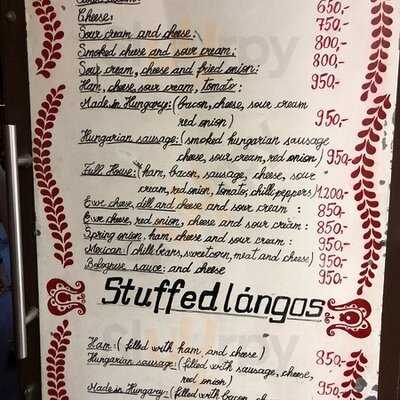 650,-
Cheese: 750,-
Sour cream and cheese: 800,-
Smoked cheese and sour cream: 800,-
Sour cream, cheese and fried onion:
Ham, cheese, sour cream, tomato: 950,-
Made in Hungary: (bacon, cheese, sour cream
red onion) 950,-
Hungarian sausage: (smoked hungarian sausage
cheese, sour cream, red onion) 950,-
Full House: (ham, bacon, sausage, cheese, sour
cream, red onion, tomato, chilli peppers) 1.200,-
Ewe cheese, dill and cheese and sour cream : 850,-
Ewe cheese, red onion, cheese and sour cream : 850,-
Spring onion, ham, cheese and sour cream : 950,-
Mexican: (chilli beans, sweetcorn, meat and cheese) 950,-
Bolognese sauce: and cheese 950,-
Stuffed lángos
Ham: (filled with ham and cheese) 850,-
Hungarian sausage: (filled with sausage, cheese,
red onion) 950,-
Made in Hungary: (filled with bacon, ch